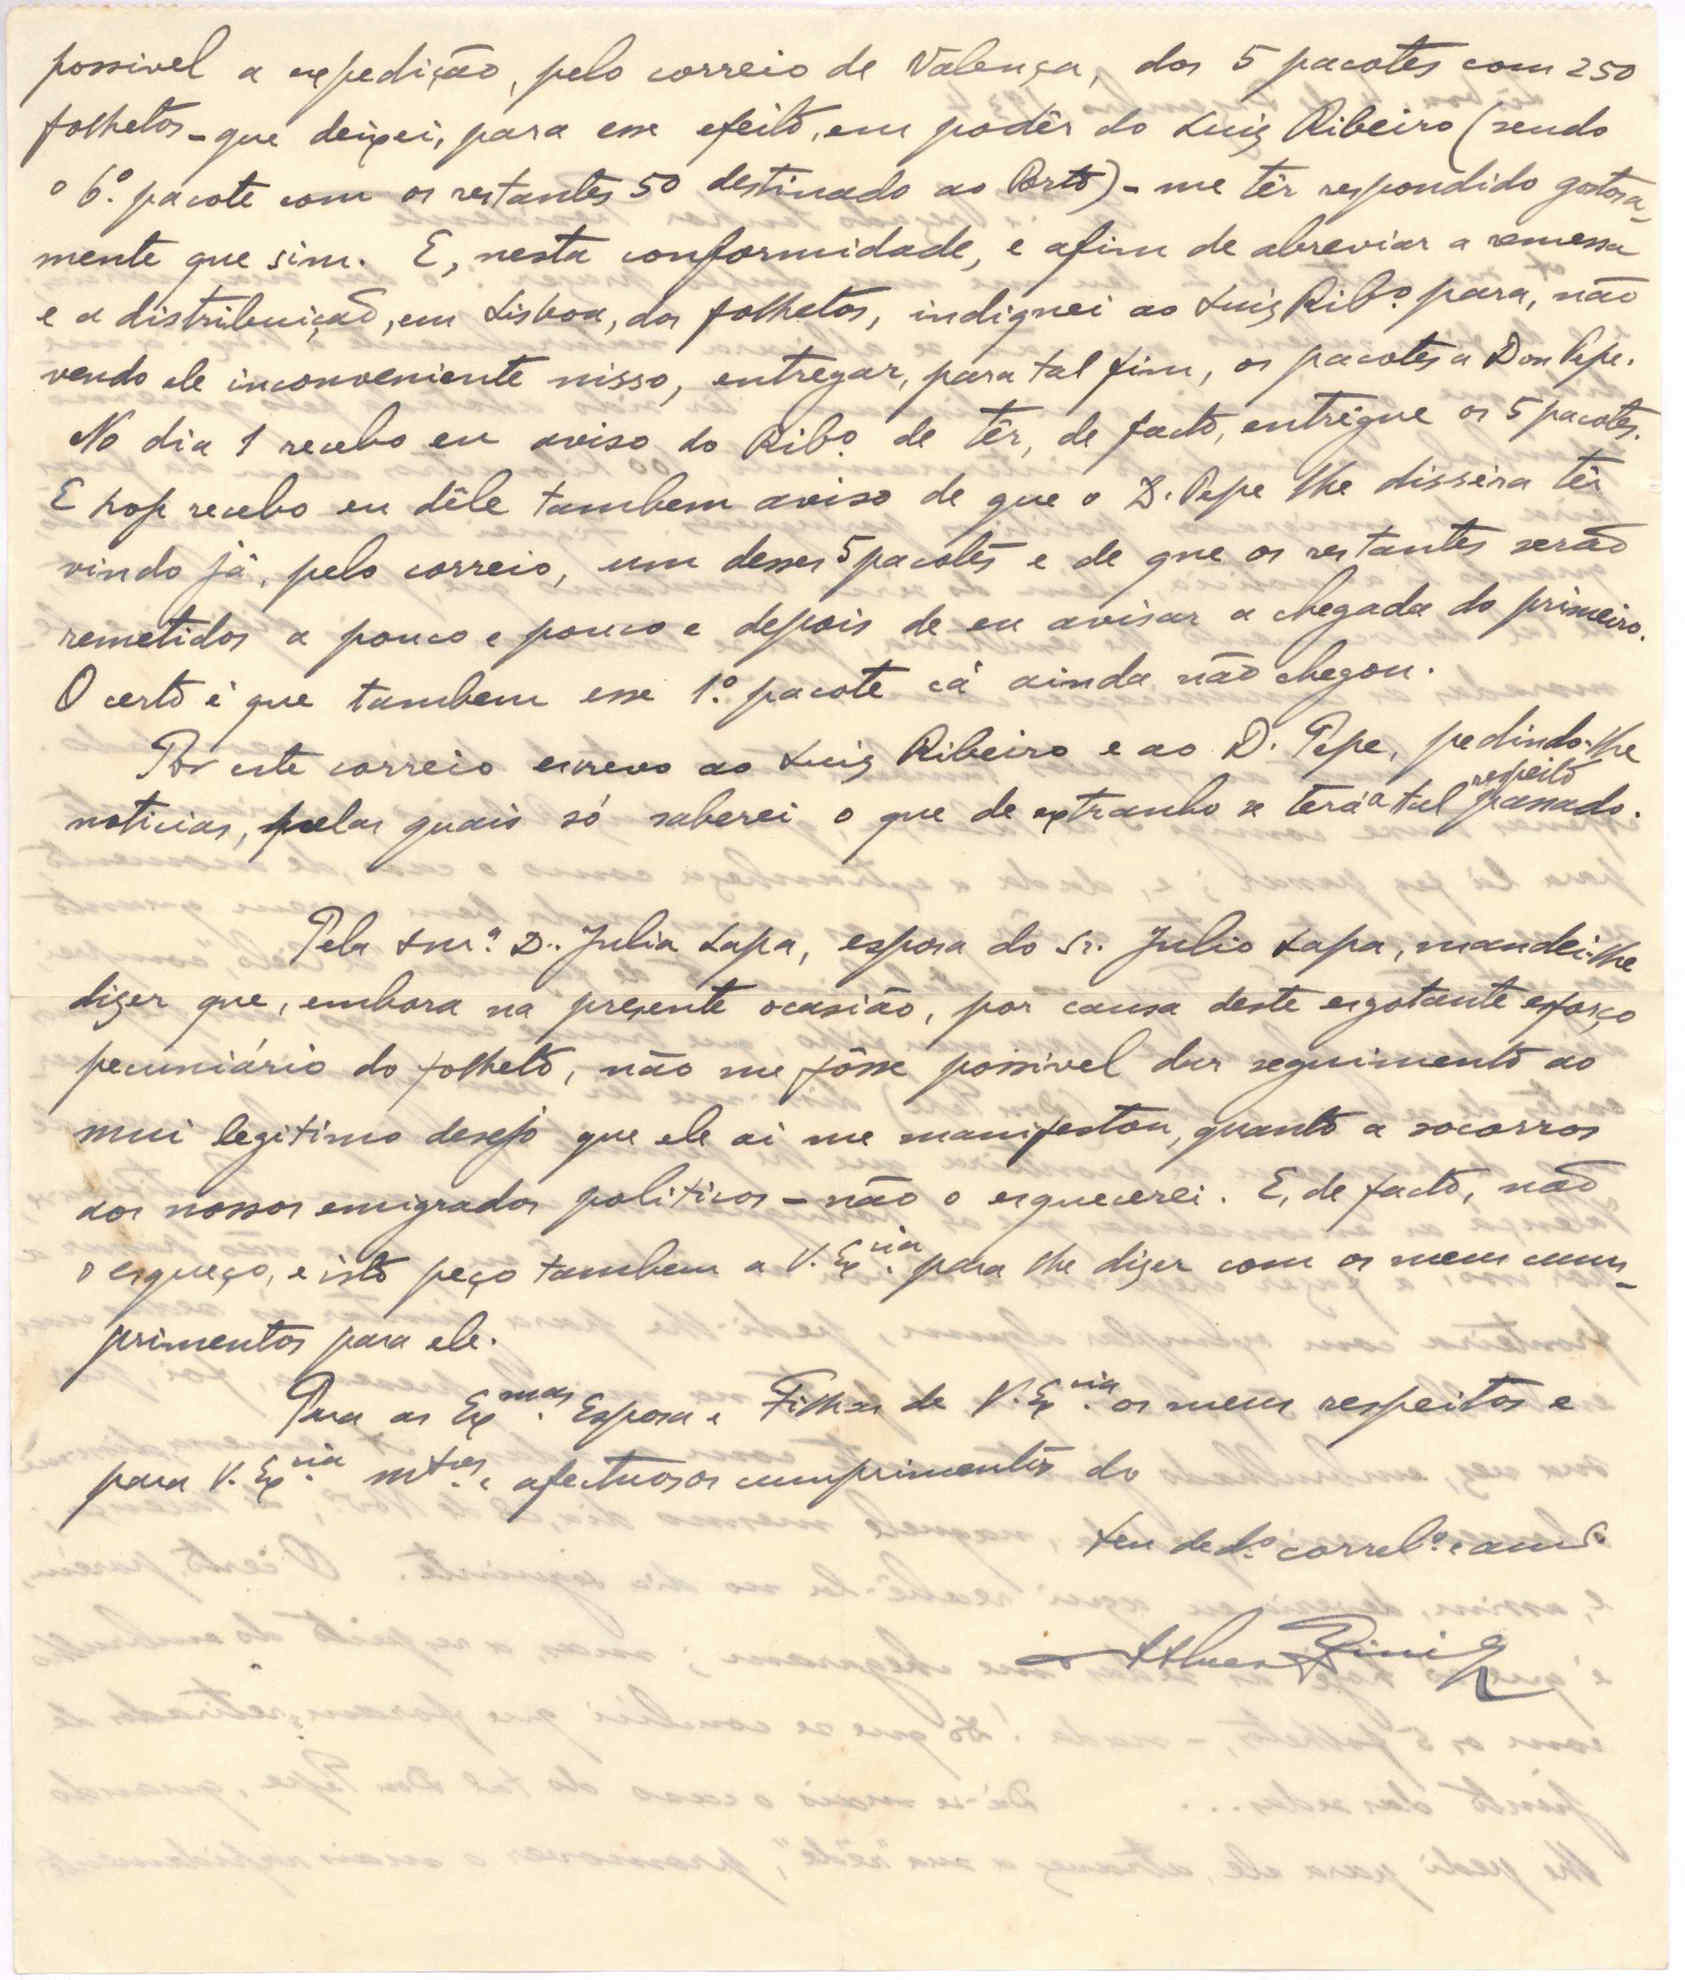 possivel a expedição, pelo correio de Valença, dos 5 pacotes com 250
folhetos - que deixei, para esse efeito, em podêr do Luiz Ribeiro (sendo
o 6.º pacote com os restantes 50 destinado ao Porto) - me têr respondido gostosa-
mente que sim. E, nesta conformidade, e afim de abreviar a remessa
e a distribuição, em Lisboa, dos folhetos, indiquei ao Luiz Rib.º para, não
vendo ele inconveniente nisso, entregar, para tal fim, os pacotes a Don Pepe.
No dia 1 recebo eu aviso do Rib.º de têr, de facto, entrégue os 5 pacotes.
E hoje recebo eu dêle tambem aviso de que o D. Pepe lhe disséra têr
vindo já, pelo correio, um desses 5 pacotes e de que os restantes serão
remetidos a pouco e pouco e depois de eu avisar a chegada do primeiro.
O certo é que tambem esse 1.º pacote cá ainda não chegou.
Por este correio escrevo ao Luiz Ribeiro e ao D. Pepe, pedindo-lhe
noticias, pelas quais só saberei o que de extranho se terá a tal respeito passado.
Pela Snr.ª D. Julia Lapa, esposa do Sr. Julio Lapa, mandei-lhe
dizer que, embora na presente ocasião, por causa deste esgotante esforço
pecuniário do folheto, não me fôsse possivel dar seguimento ao
mui legitimo desejo que ele ai me manifestou, quanto a socorros
aos nossos emigrados politicos - não o esquecerei. E, de facto, não
o esqueço, e isto peço tambem a V. Ex.cia para lhe dizer com os meus cum-
primentos para ele.
Para as Ex.mas Esposa e Filhas de V. Ex.cia os meus respeitos e
para V. Ex.cia m.tos e afectuosos cumprimentos do
seu ded.º correl.º e am.º